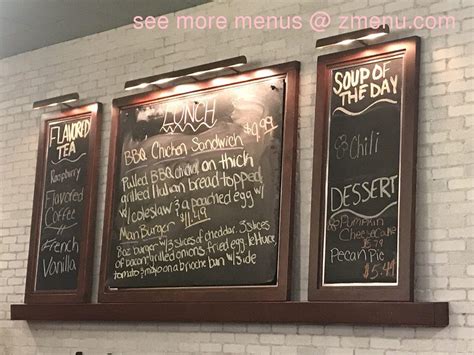 see more menus @ zmenu.com
FLAVORED
TEA
Raspberry
Flavored
Coffee
French
Vanilla
LUNCH
BBQ Chicken Sandwich $9.99
Pulled BBQ chicken on thick
grilled Italian bread-topped
w/coleslaw & a poached egg w/
$11.49
Main Burger
8oz burger w/3 slices of cheddar, 3 slices
of bacon, grilled onions, fried egg, lettuce
tomato & mayo on a brioche bun w/side
SOUP OF
THE DAY
Chili
DESSERT
Pumpkin
Cheesecake
$5.79
Pecan Pie
$5.49